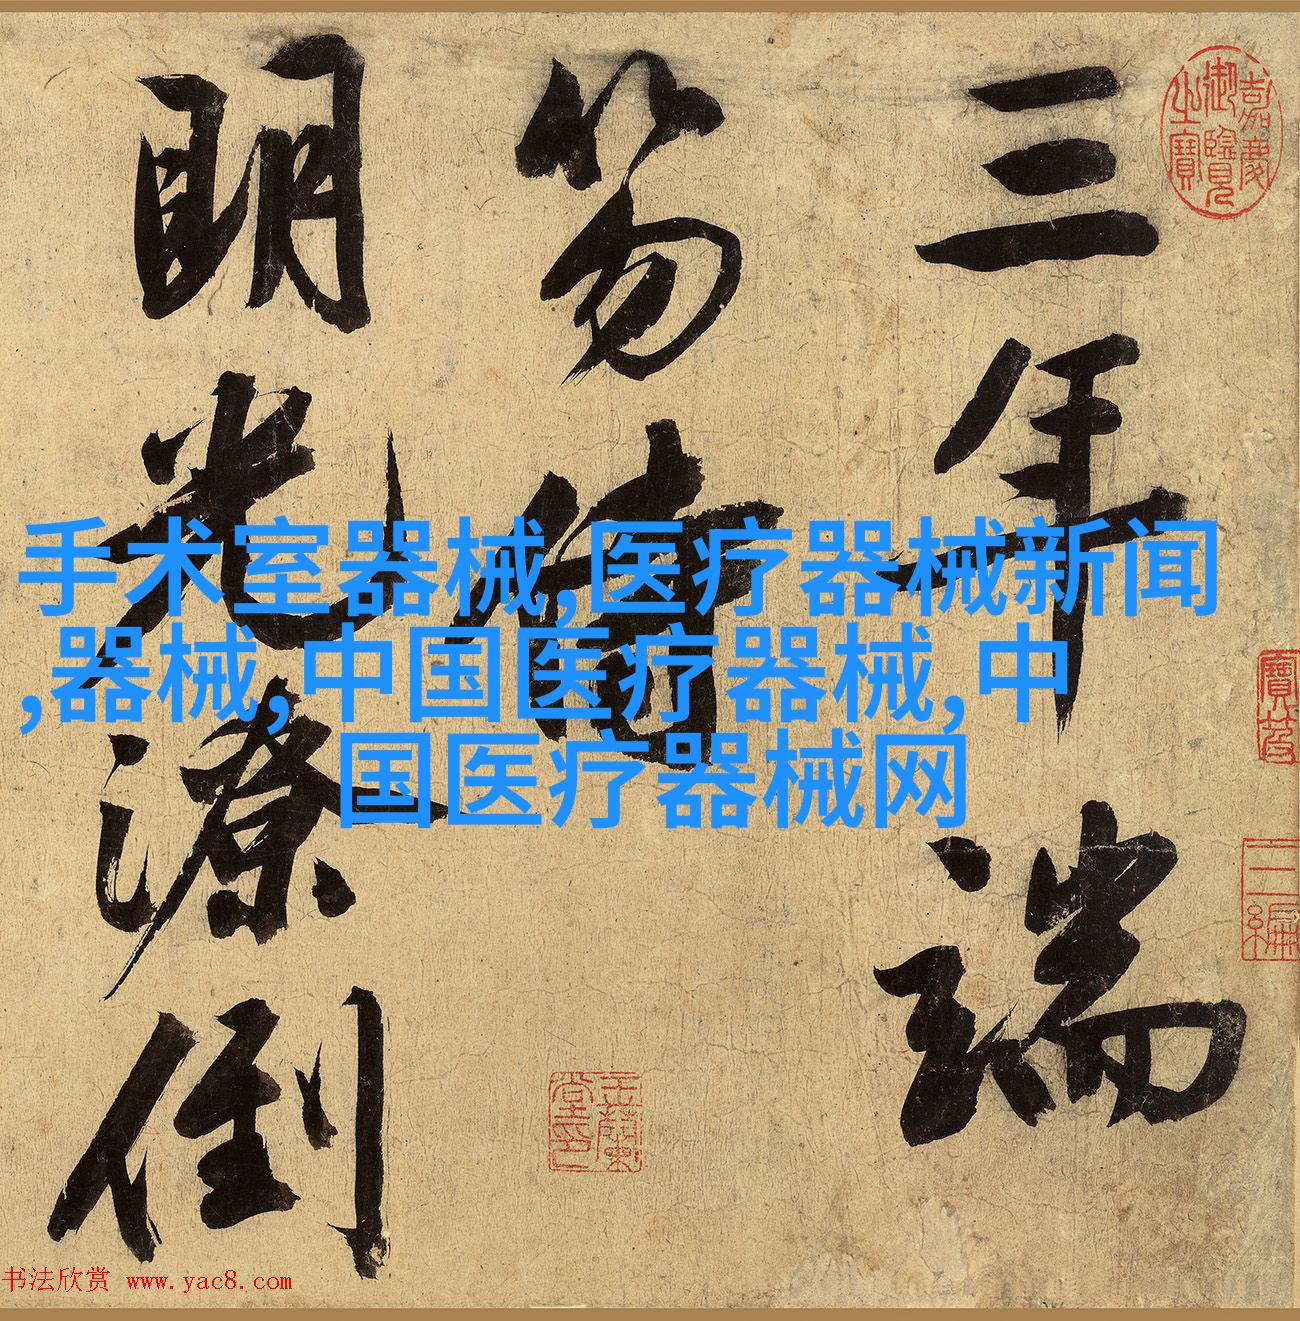 三年端
笏侍
明光潦倒
嘉慶
御覽
之寶
寶笈
三編
手术室器械,医疗器械新闻
,器械,中国医疗器械,中
国医疗器械网
书法欣赏 www.yac8.com